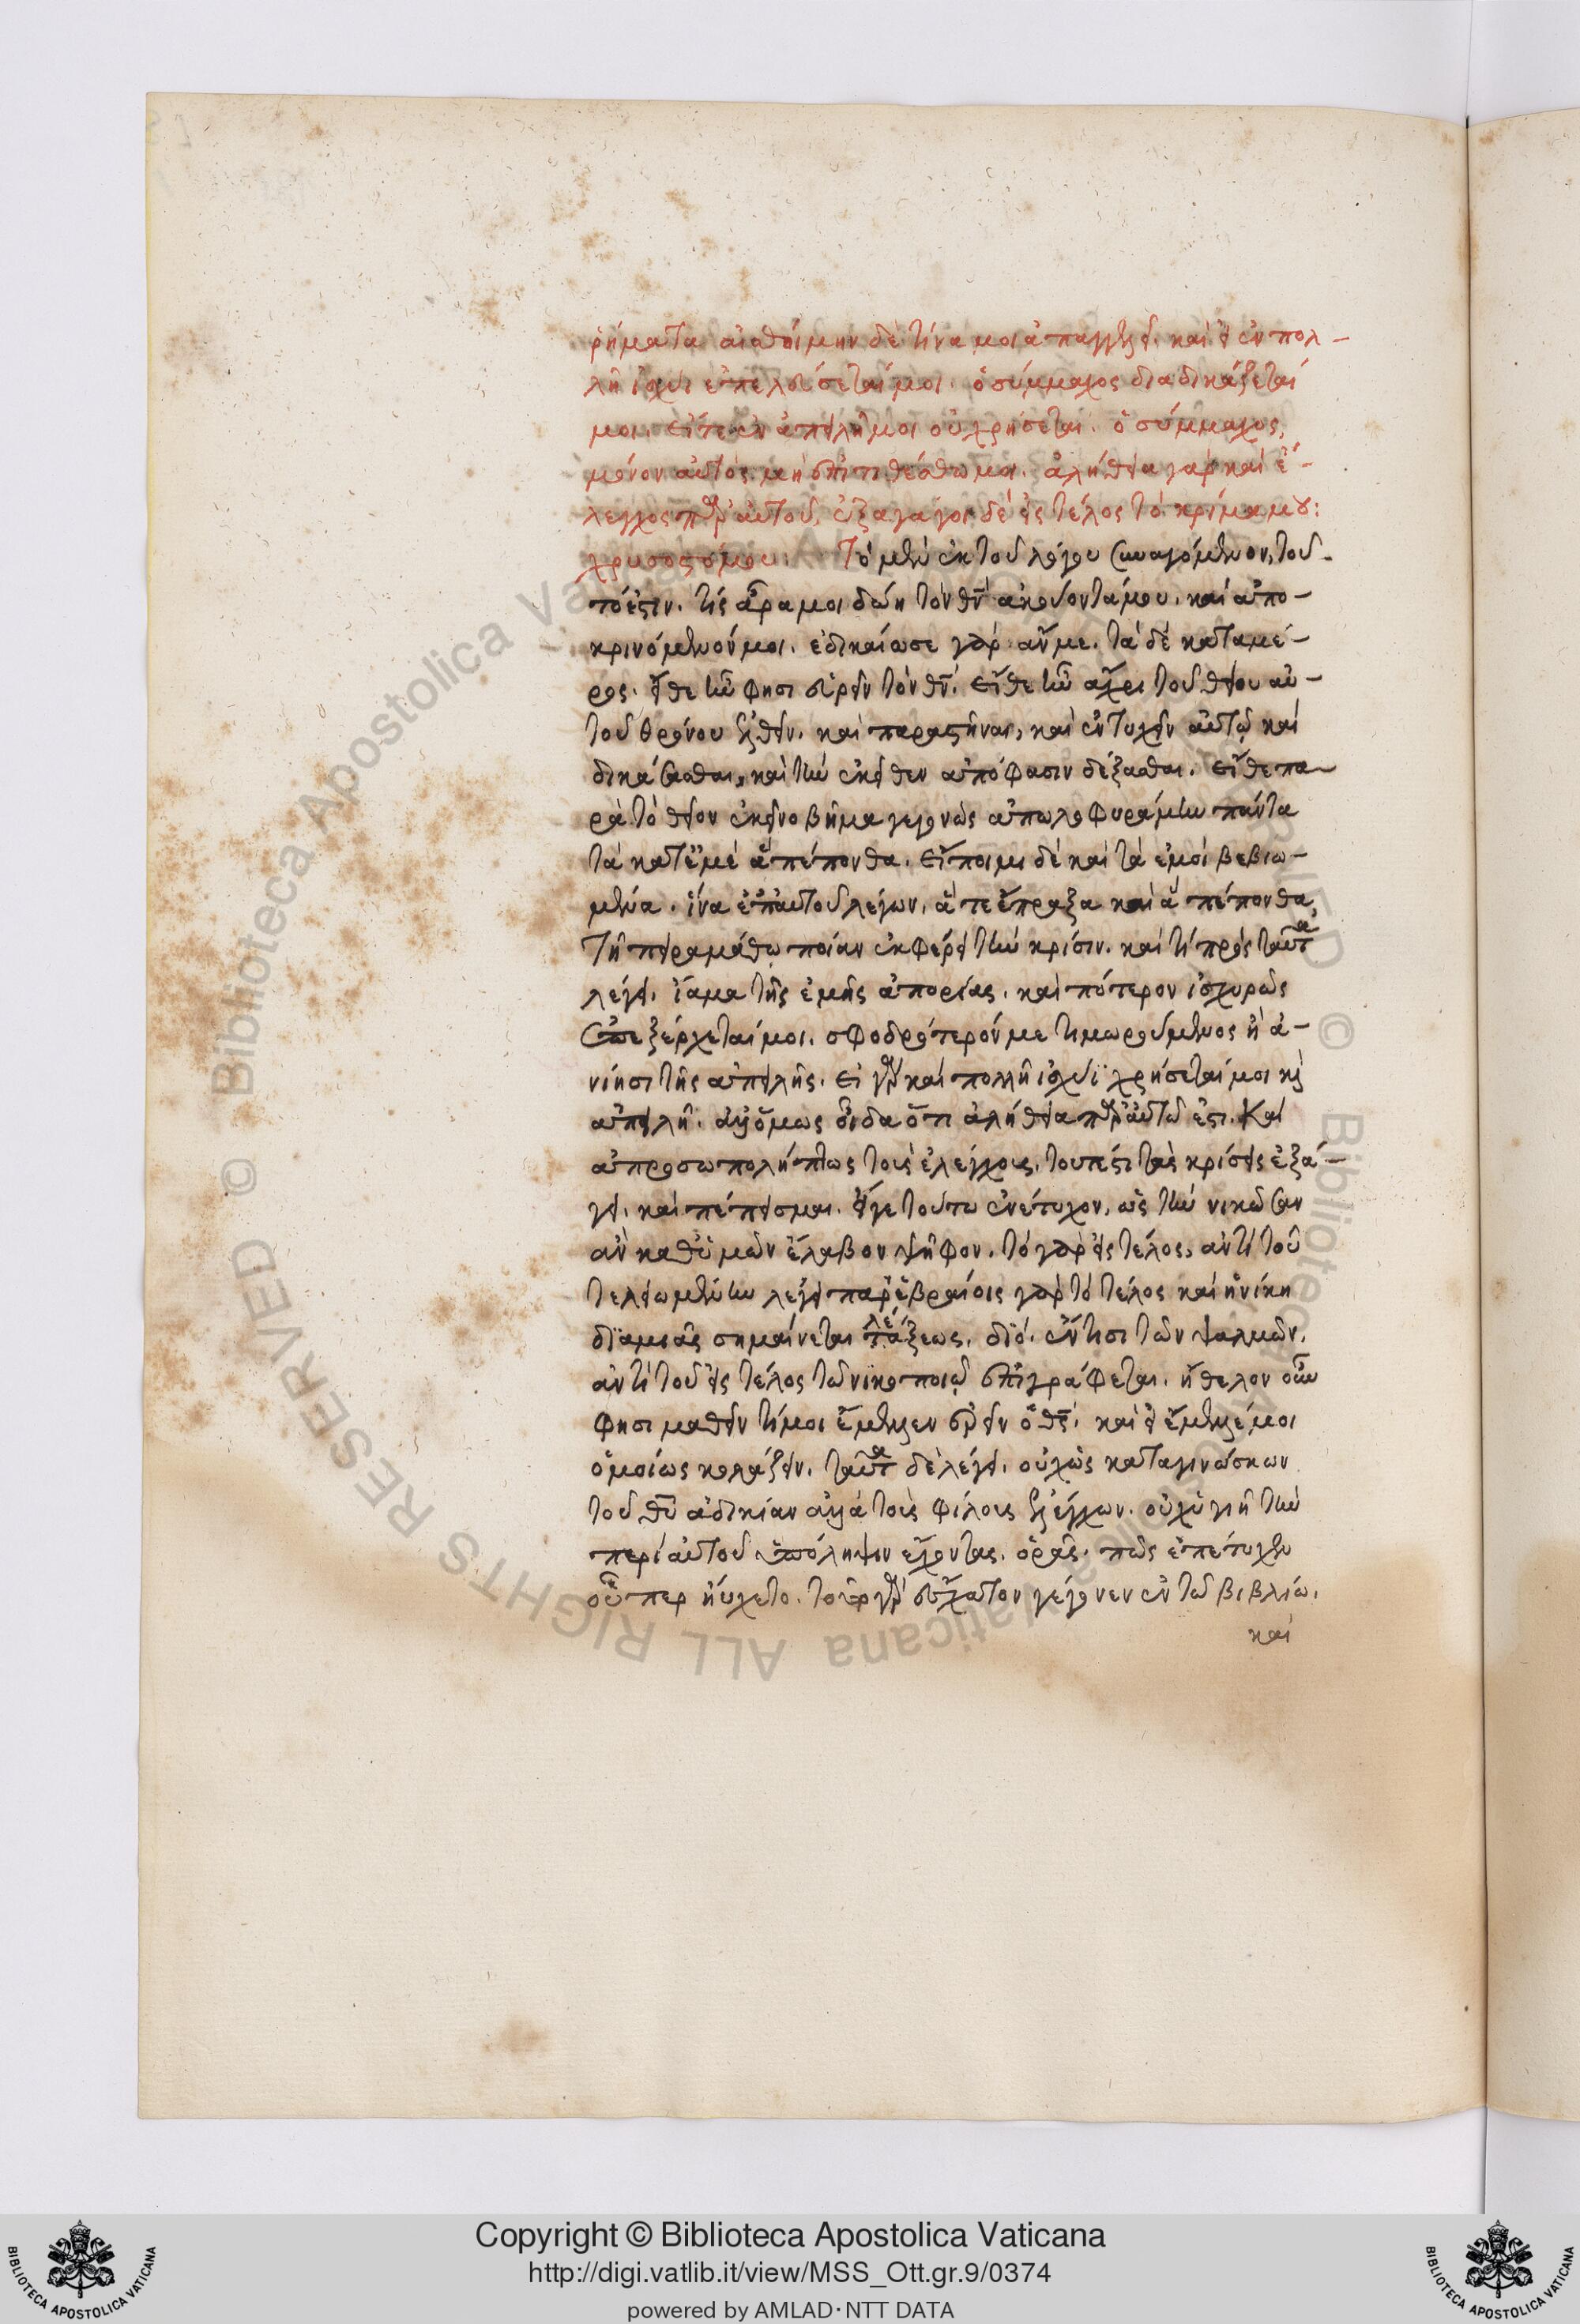 ῥήματα αἰσθοίμην δὲ τίνα μοι ἀπαγγελεῖ. καὶ εἰ ἐν πολ-
λῇ ἰσχύι ἐπελεύσεταί μοι. ὁ σύμμαχος διαδικάζεταί
μοι. εἶτα ἐν ἀπειλῇ μοι οὐ χρήσεται. ὁ σύμμαχος,
μόνον αὐτὸς μὴ ἐπιτιθέσθω μοι. ἀλήθεια γὰρ καὶ ἔ-
λεγχος παρ' αὐτοῦ, ἐξαγάγοι δὲ εἰς τέλος τὸ κρίμα μου:
χρυσοστόμου. Τὸ μὲν ἐκ τοῦ λόγου συναγόμενον, τοῦ-
τό ἐστιν. τίς ἄρα μοι δώη τὸν θν̄ ἀκούοντά μου. καὶ ἀπο-
κρινόμενόν μοι. ἐδικαίωσε γὰρ ἄν με. τὰ δὲ κατὰ μέ-
ρος. εἴθε ἦν φησι εὑρεῖν τὸν θν̄. εἴθε ἦν ἄχρι τοῦ θείου αὐ-
τοῦ θρόνου ἐλθεῖν. καὶ παραστῆναι, καὶ ἐντυχεῖν αὐτῷ καὶ
δικάσασθαι, καὶ τὴν ἐκεῖθεν ἀπόφασιν δέξασθαι. εἴθε πα-
ρὰ τὸ θεῖον ἐκεῖνο βῆμα γεγονὼς ἀπωλοφυράμην πάντα
τὰ κατ' ἐμὲ ἃ πέπονθα. εἴποιμι δὲ καὶ τὰ ἐμοὶ βεβιω-
μένα. ἵνα ἐπ' αὐτοῦ λέγων, ἅ τε ἔπραξα καὶ ἃ πέπονθα,
τῇ πείρᾳ μάθω ποίαν ἐκφέρει τὴν κρίσιν. καὶ τί πρὸς ταῦτα
λέγει. ἴαμα τῆς ἐμῆς ἀπορίας. καὶ πότερον ἰσχυρῶς
ἐπεξέρχεταί μοι. σφοδρότερόν με τιμωρούμενος ἢ ἀ-
νίησι τῆς ἀπειλῆς. εἰ γὰρ καὶ πολλῇ ἰσχύϊ χρήσεταί μοι καὶ
ἀπειλῇ. ἀλλ' ὅμως οἶδα ὅτι ἀλήθεια παρ' αὐτῶ ἐστι. Καὶ
ἀπροσωπολήπτως τοὺς ἐλέγχους, τουτέστι τὰς κρίσεις ἐξά-
γει. καὶ πέπεισμαι. εἴγε τούτω ἐνέτυχον, ὡς τὴν νικῶσαν
ἂν καθ' ὑμῶν ἔλαβον ψῆφον. τὸ γὰρ εἰς τέλος, ἀντὶ τοῦ
τελείωμένην λέγει παρ' ἑβραίοις γὰρ τὸ τέλος καὶ ἡ νίκη
διὰ μιᾶς σημαίνεται λέξεως. διὸ. ἔν τισι τῶν ψαλμῶν.
ἀντὶ τοῦ εἰς τέλος τῶ νικοποιῷ ἐπιγράφεται. ἤθελον οὖν
φησι μαθεῖν τί μοι ἔμελλεν ἐρεῖν ὁ θς̄. καὶ εἰ ἔμελλέ μοι
ὁμοίως κολάζειν. ταῦτα δὲ λέγει. οὐχ ὡς καταγινώσκων
τοῦ θῡ ἀδικίαν ἀλλὰ τοὺς φίλους ἐλέγχων. οὐχ ὑγιῆ τὴν
περὶ αὐτοῦ ὑπόληψιν ἔχοντας. ὁρᾶς. πῶς ἐπέτυχεν
οὗπερ ηὔχετο. τοῦτο γὰρ ἔσχατον γέγονεν ἐν τῶ βιβλίω.
καὶ
Copyright © Biblioteca Apostolica Vaticana
http://digi.vatlib.it/view/MSS_Ott.gr.9/0374
powered by AMLAD·NTT DATA